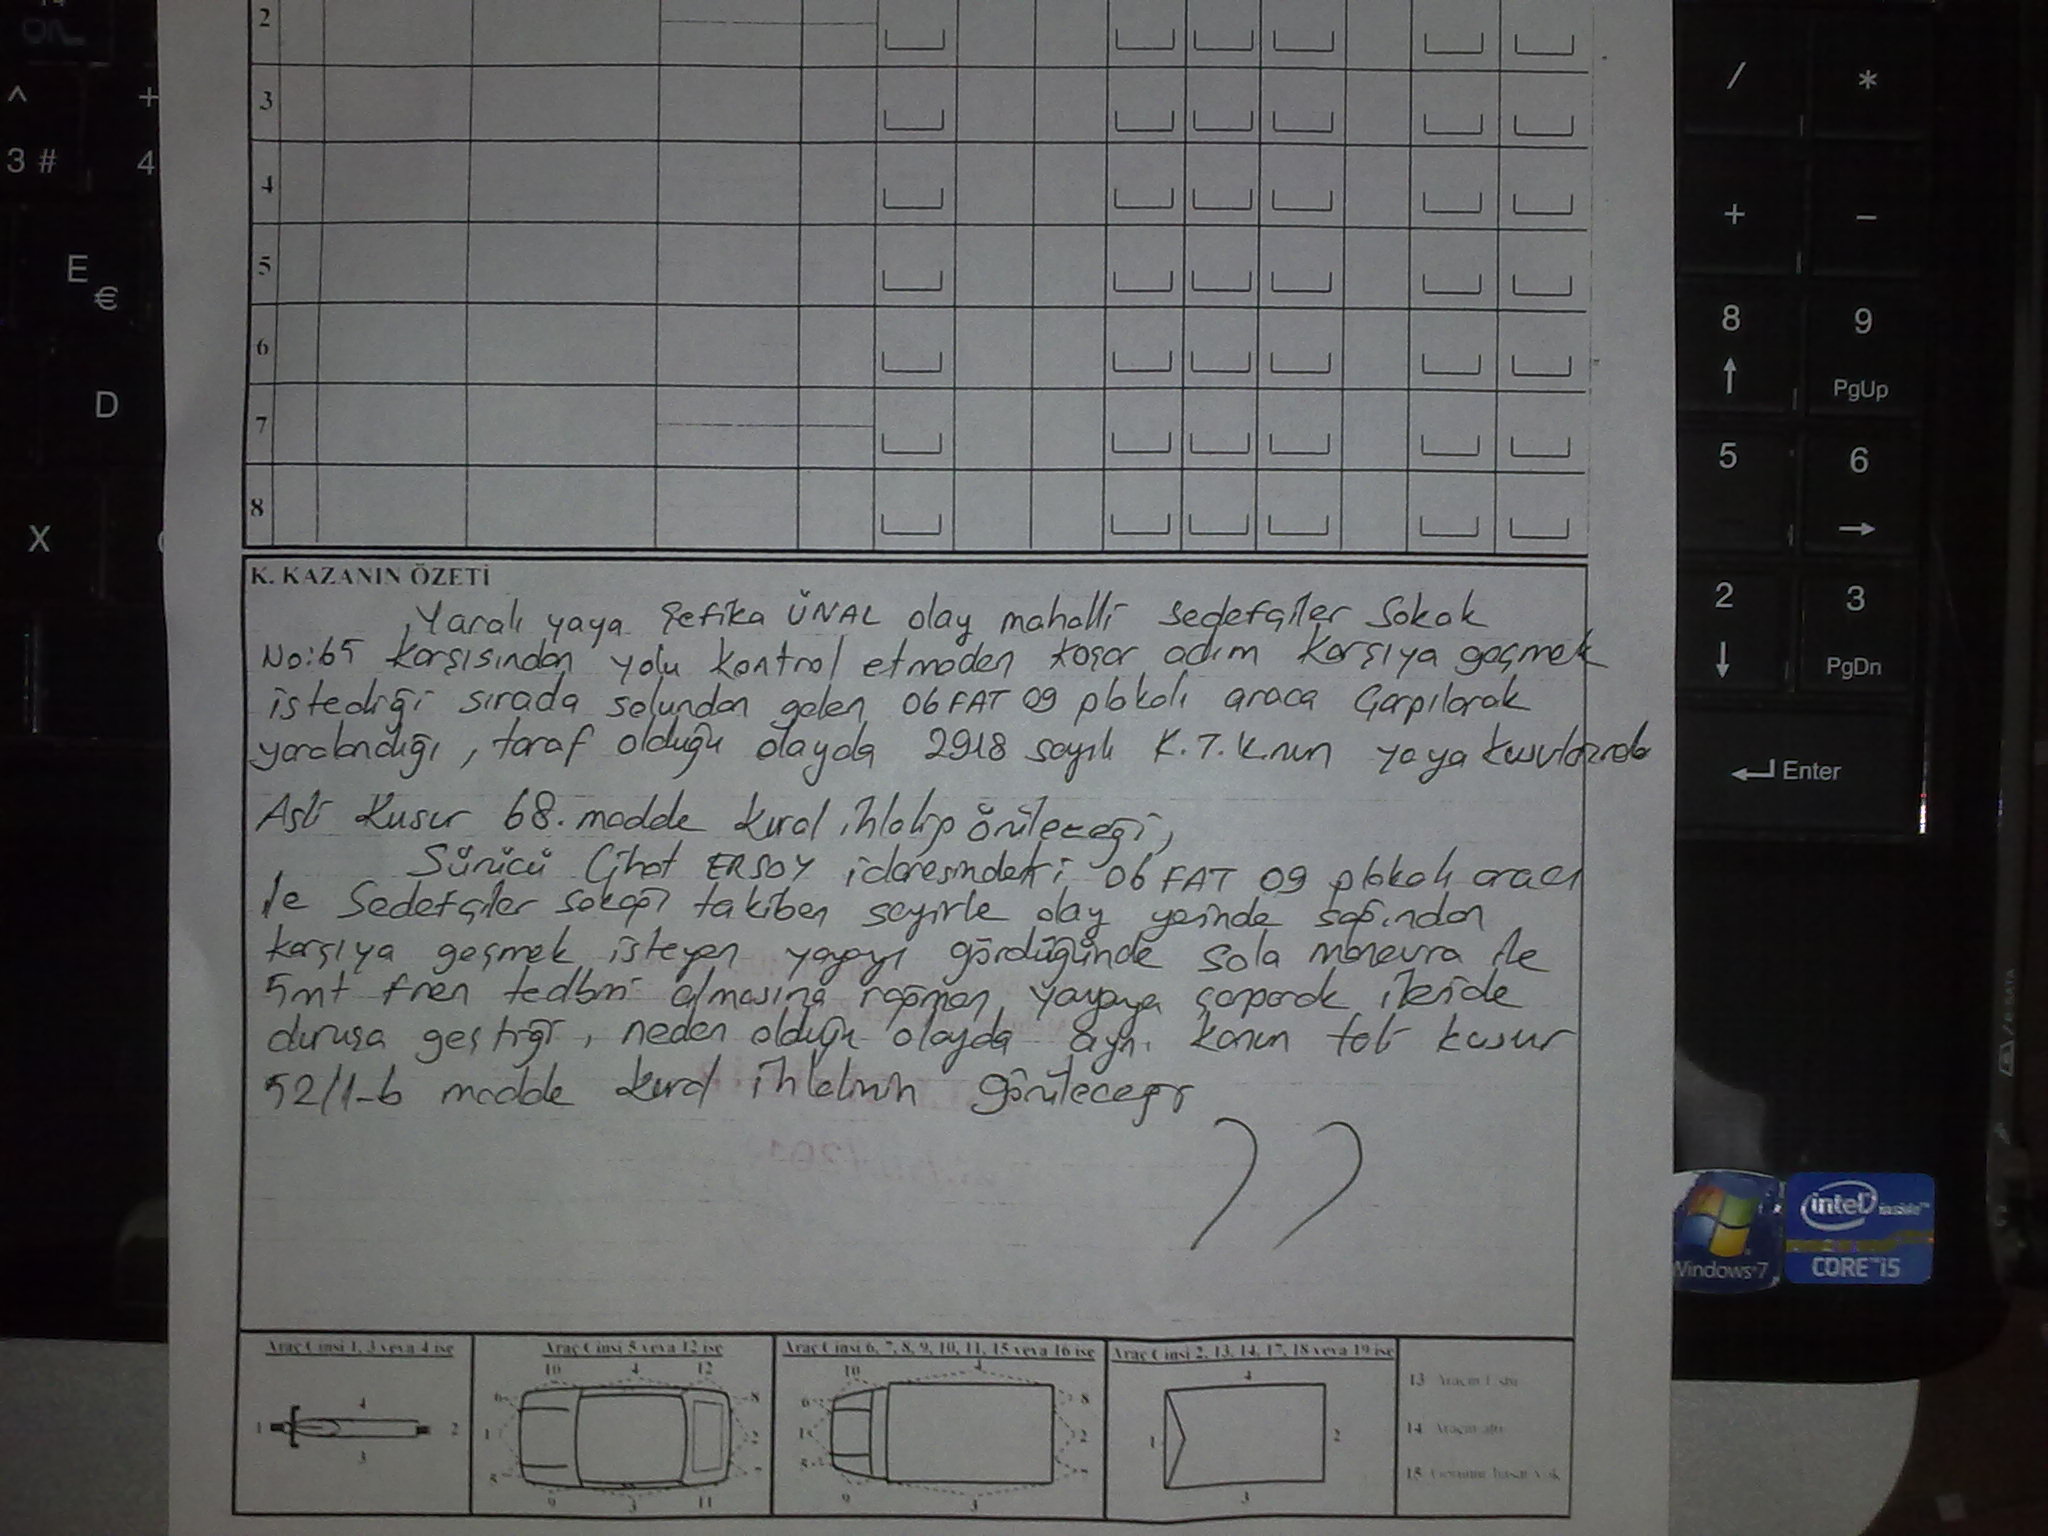 2
3
4
5
6
7
8
K. KAZANIN ÖZETİ
Yaralı yaya Şefika ÜNAL olay mahalli Sedefçiler Sokak
No:65 karşısından yolu kontrol etmeden koşar adım karşıya geçmek
istediği sırada solundan gelen 06 FAT 09 plakalı araca çarpılarak
yaralandığı, taraf olduğu olayda 2918 sayılı K.T.K.nun yaya kusurlarında
Asli kusur 68. madde kural ihlali
Sürücü Cihat ERSOY idaresindeki 06 FAT 09 plakalı aracı
ile Sedefçiler sokağı takiben seyirle olay yerinde sağından
karşıya geçmek isteyen yayayı gördüğünde sola manevra ile
5mt fren tedbiri almasına rağmen yayaya çarparak ileride
duruşa geçtiği, neden olduğu olayda aynı kanun tali kusur
52/1-b madde kural ihlalinin görüleceği
Araç Cinsi 1, 3 veya 4 ise
4
1 2
3
Araç Cinsi 5 veya 12 ise
10 4 12
6 8
1 2
5 7
9 3 11
Araç Cinsi 6, 7, 8, 9, 10, 11, 15 veya 16 ise
10 4
6 8
1 2
5 7
9 3
Araç Cinsi 2, 13, 14, 17, 18 veya 19 ise
4
1 2
3
13 Aracın Üstü
14 Aracın altı
15
^ +
3 # 4
E €
D
X
/ *
+ −
8 9
↑ PgUp
5 6
→
2 3
↓ PgDn
Enter
Windows 7
intel inside
CORE i5
eSATA